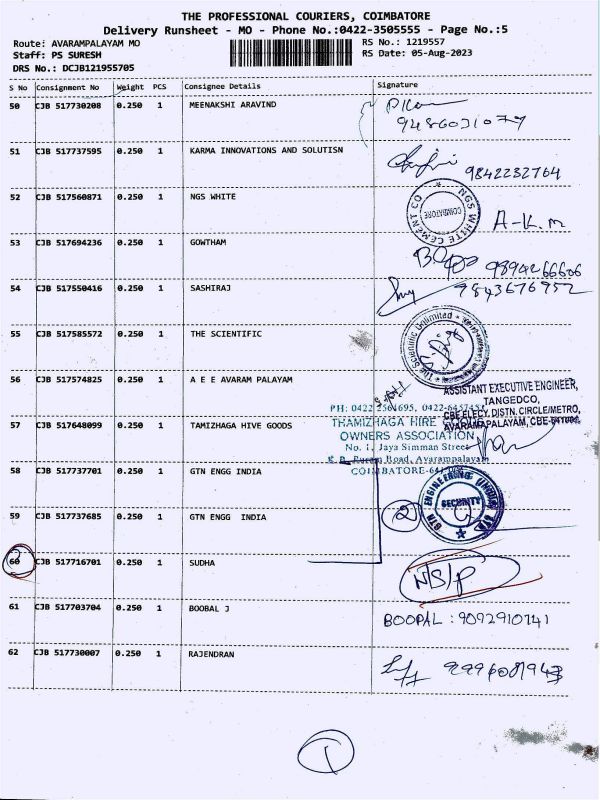 THE PROFESSIONAL COURIERS, COIMBATORE
Delivery Runsheet - MO - Phone No.:0422-3505555 - Page No.:5
Route: AVARAMPALAYAM MO RS No.: 1219557
Staff: PS SURESH RS Date: 05-Aug-2023
DRS No.: DCJB121955705
S No Consignment No Weight PCS Consignee Details Signature
50 CJB 517730208 0.250 1 MEENAKSHI ARAVIND
9486031079
51 CJB 517737595 0.250 1 KARMA INNOVATIONS AND SOLUTISN
9842232764
52 CJB 517560871 0.250 1 NGS WHITE
NGS WHITE CEMENT CO
COIMBATORE
A-K.m
53 CJB 517694236 0.250 1 GOWTHAM
9894266606
54 CJB 517550416 0.250 1 SASHIRAJ
9843676952
55 CJB 517585572 0.250 1 THE SCIENTIFIC
The Scientific Unlimited
56 CJB 517574825 0.250 1 A E E AVARAM PALAYAM
ASSISTANT EXECUTIVE ENGINEER,
TANGEDCO,
CBE ELECY. DISTN. CIRCLE/METRO,
AVARAMPALAYAM, CBE-641004
57 CJB 517648099 0.250 1 TAMIZHAGA HIVE GOODS
PH: 0422 2561695, 0422-6457453
THAMIZHAGA HIRE GOODS
OWNERS ASSOCIATION
No. 1, Jaya Simman Street
Road, Avarampalayam
COIMBATORE-641
58 CJB 517737701 0.250 1 GTN ENGG INDIA
GTN ENGINEERING
SECURITY
59 CJB 517737685 0.250 1 GTN ENGG INDIA
2
60 CJB 517716701 0.250 1 SUDHA
N/S/P
61 CJB 517703704 0.250 1 BOOBAL J
BOOPAL : 9092910141
62 CJB 517730007 0.250 1 RAJENDRAN
1